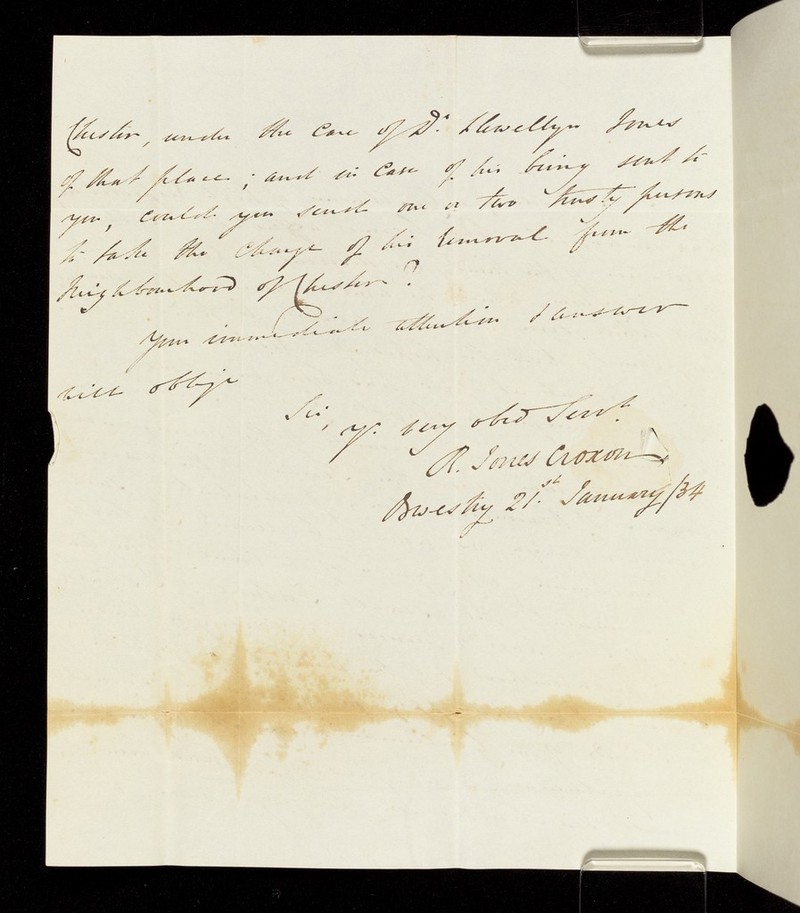 Chester, under the care of Dr. Llewellyn Jones
of that place; and in case of his being sent to
you, could you send one or two trusty persons
to take the charge of his removal from the
Neighbourhood of Chester?
Your immediate attention & answer
will oblige
Sir,
yr. very obed Servt.
R. Jones Croxon
Oswestry 21st. January /34